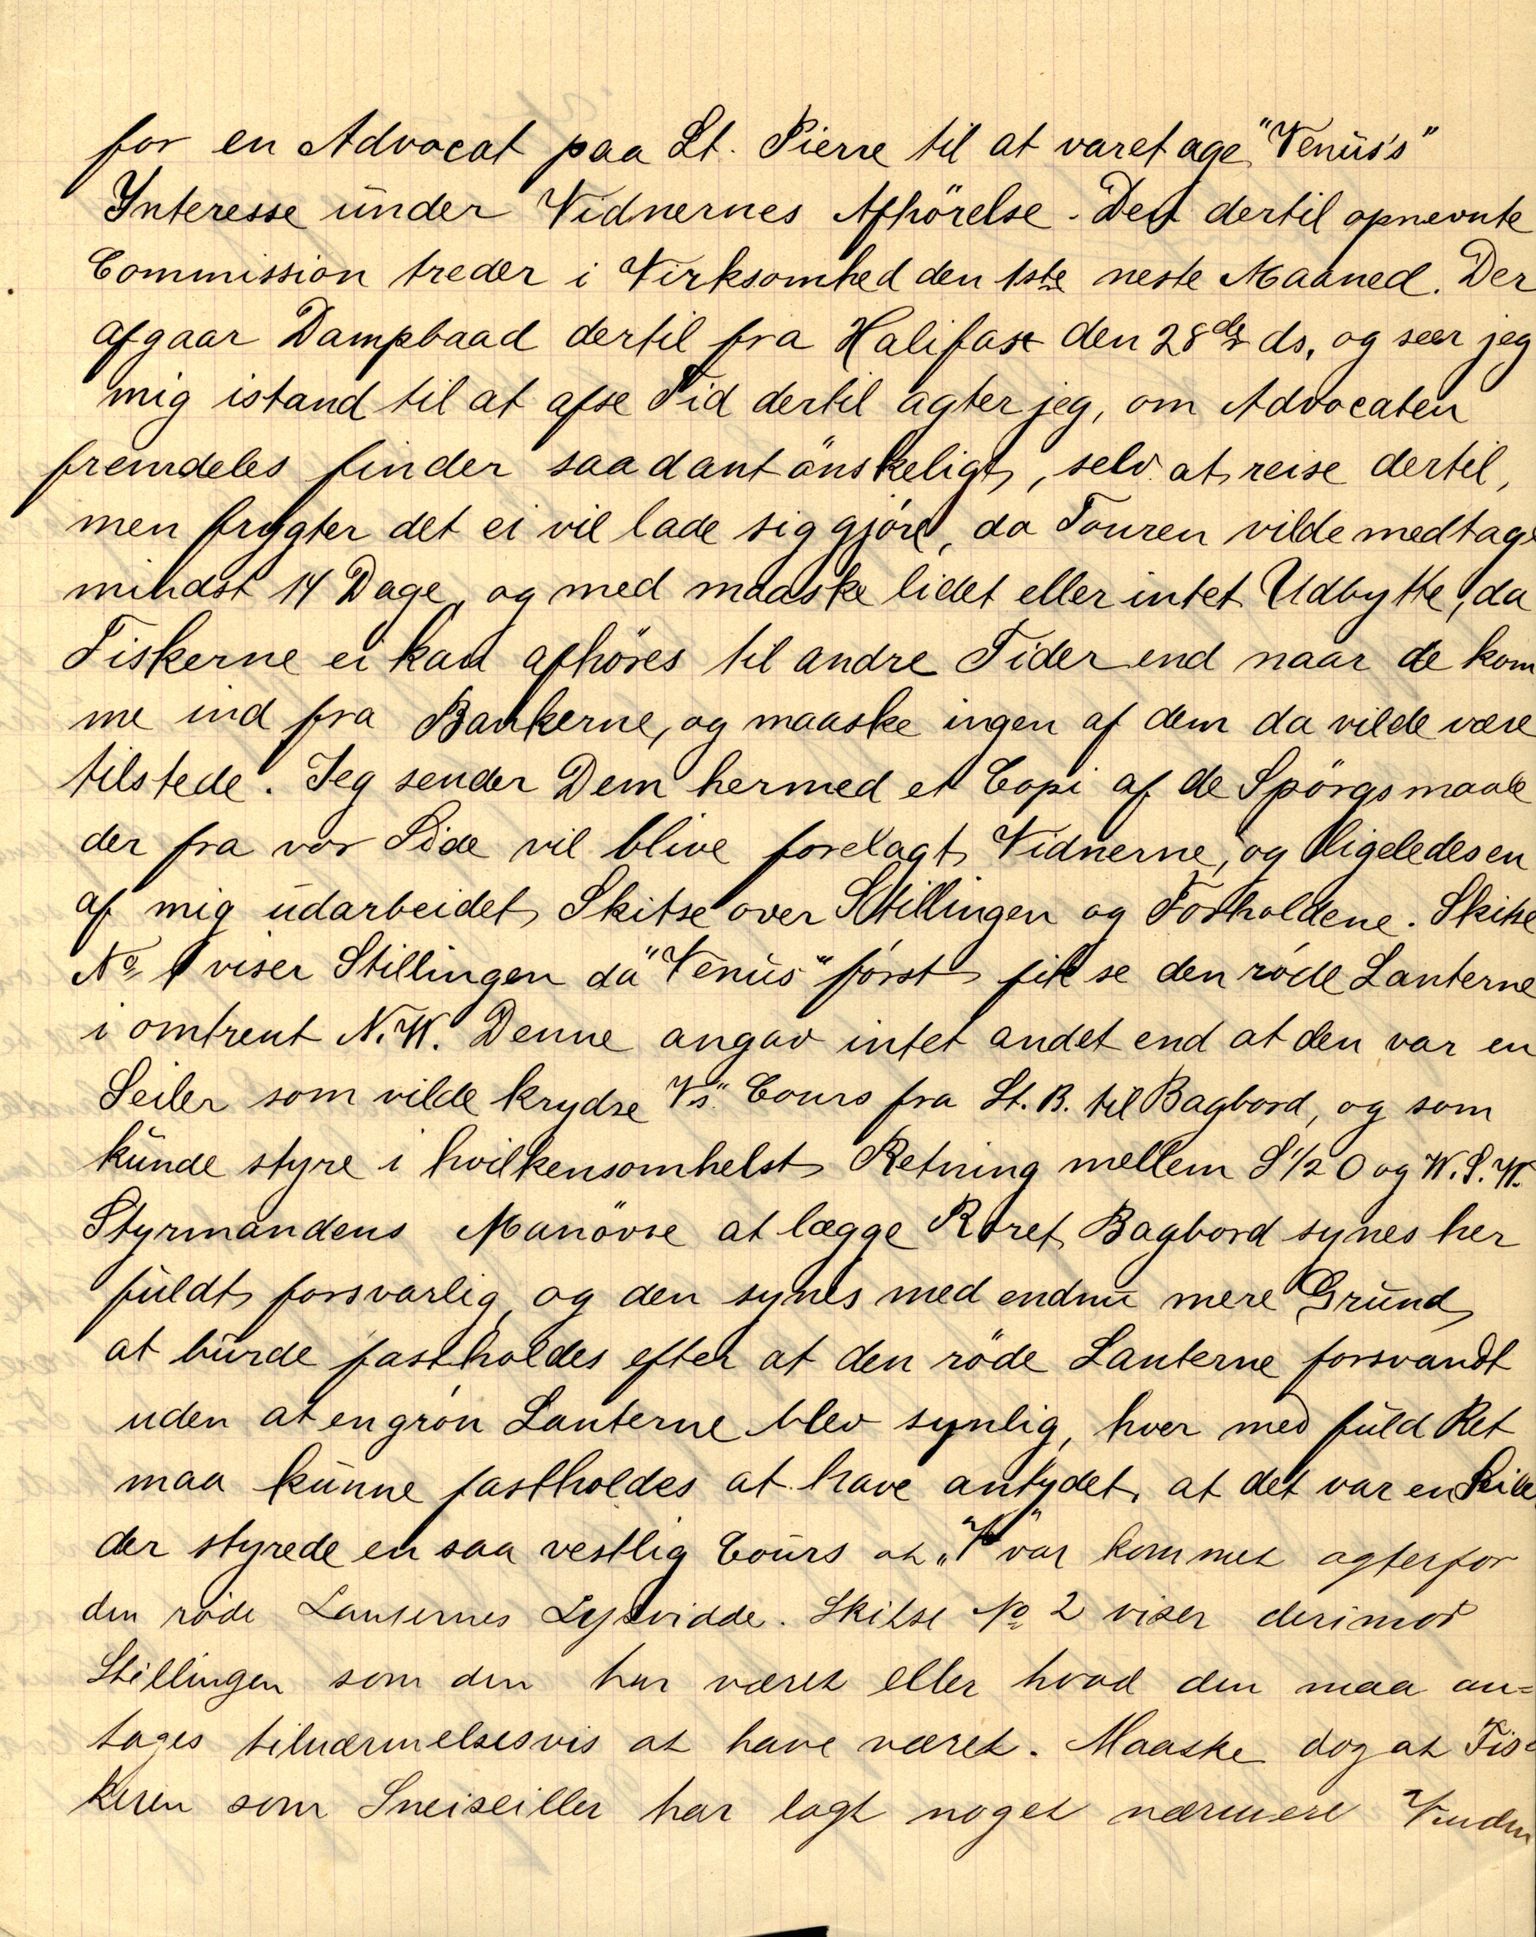 for en Advocat paa St. Pierre til at varetage "Venus's"
Interesse under Vidnernes Afhörelse. Den dertil opnevnte
Commission treder i Virksomhed den 1ste neste Maaned. Der
afgaar Dampbaad dertil fra Halifax den 28de ds, og seer jeg
mig istand til at afse Tid dertil agter jeg, om Advocaten
fremdeles finder saadant önskeligt, selv at reise dertil,
men frygter det ei vil lade sig gjöre, da Touren vilde medtage
mindst 14 Dage, og med maaske lidet eller intet Udbytte, da
Fiskerne ei kan afhöres til andre Tider end naar de kom
me ind fra Bankerne, og maaske ingen af dem da vilde være
tilstede. Jeg sender Dem hermed et Copi af de Spörgsmaale
der fra vor Side vil blive forelagt Vidnerne, og ligeledes en
af mig udarbeidet Skitse over Stillingen og Forholdene. Skitse
No 1 viser Stillingen da "Venus" först fik se den röde Lanterne
i omtrent N.W. Denne angav intet andet end at den var en
Seiler som vilde krydse "V's" Cours fra St. B. til Bagbord, og som
kunde styre i hvilkensomhelst Retning mellem S 1/2 O og W.S.W.
Styrmandens Manövre at lægge Roret Bagbord synes her
fuldt forsvarlig, og den synes med endnu mere Grund
at burde fastholdes efter at den röde Lanterne forsvandt
uden at en grön Lanterne blev synlig, hver med fuld Ret
maa kunne fastholdes at have antydet, at det var en Seiler
der styrede en saa vestlig Cours at "V" var kommet agterfor
den röde Lanternes Lysvidde. Skitse No 2 viser derimod
Stillingen som den har været eller hvad den maa an=
tages tilnærmelsesvis at have været. Maaske dog at Fis=
keren som Sneiseiller har lagt noget nærmere Vinden